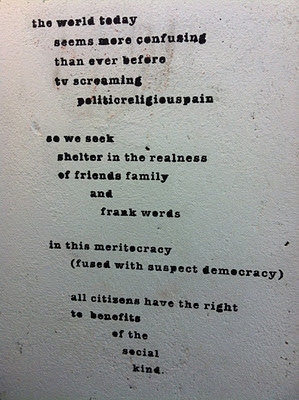 the world today
seems more confusing
than ever before
tv screaming
politicreligiouspain
so we seek
shelter in the realness
of friends family
and
frank words
in this meritocracy
(fused with suspect democracy)
all citizens have the right
to benefits
of the
social
kind.